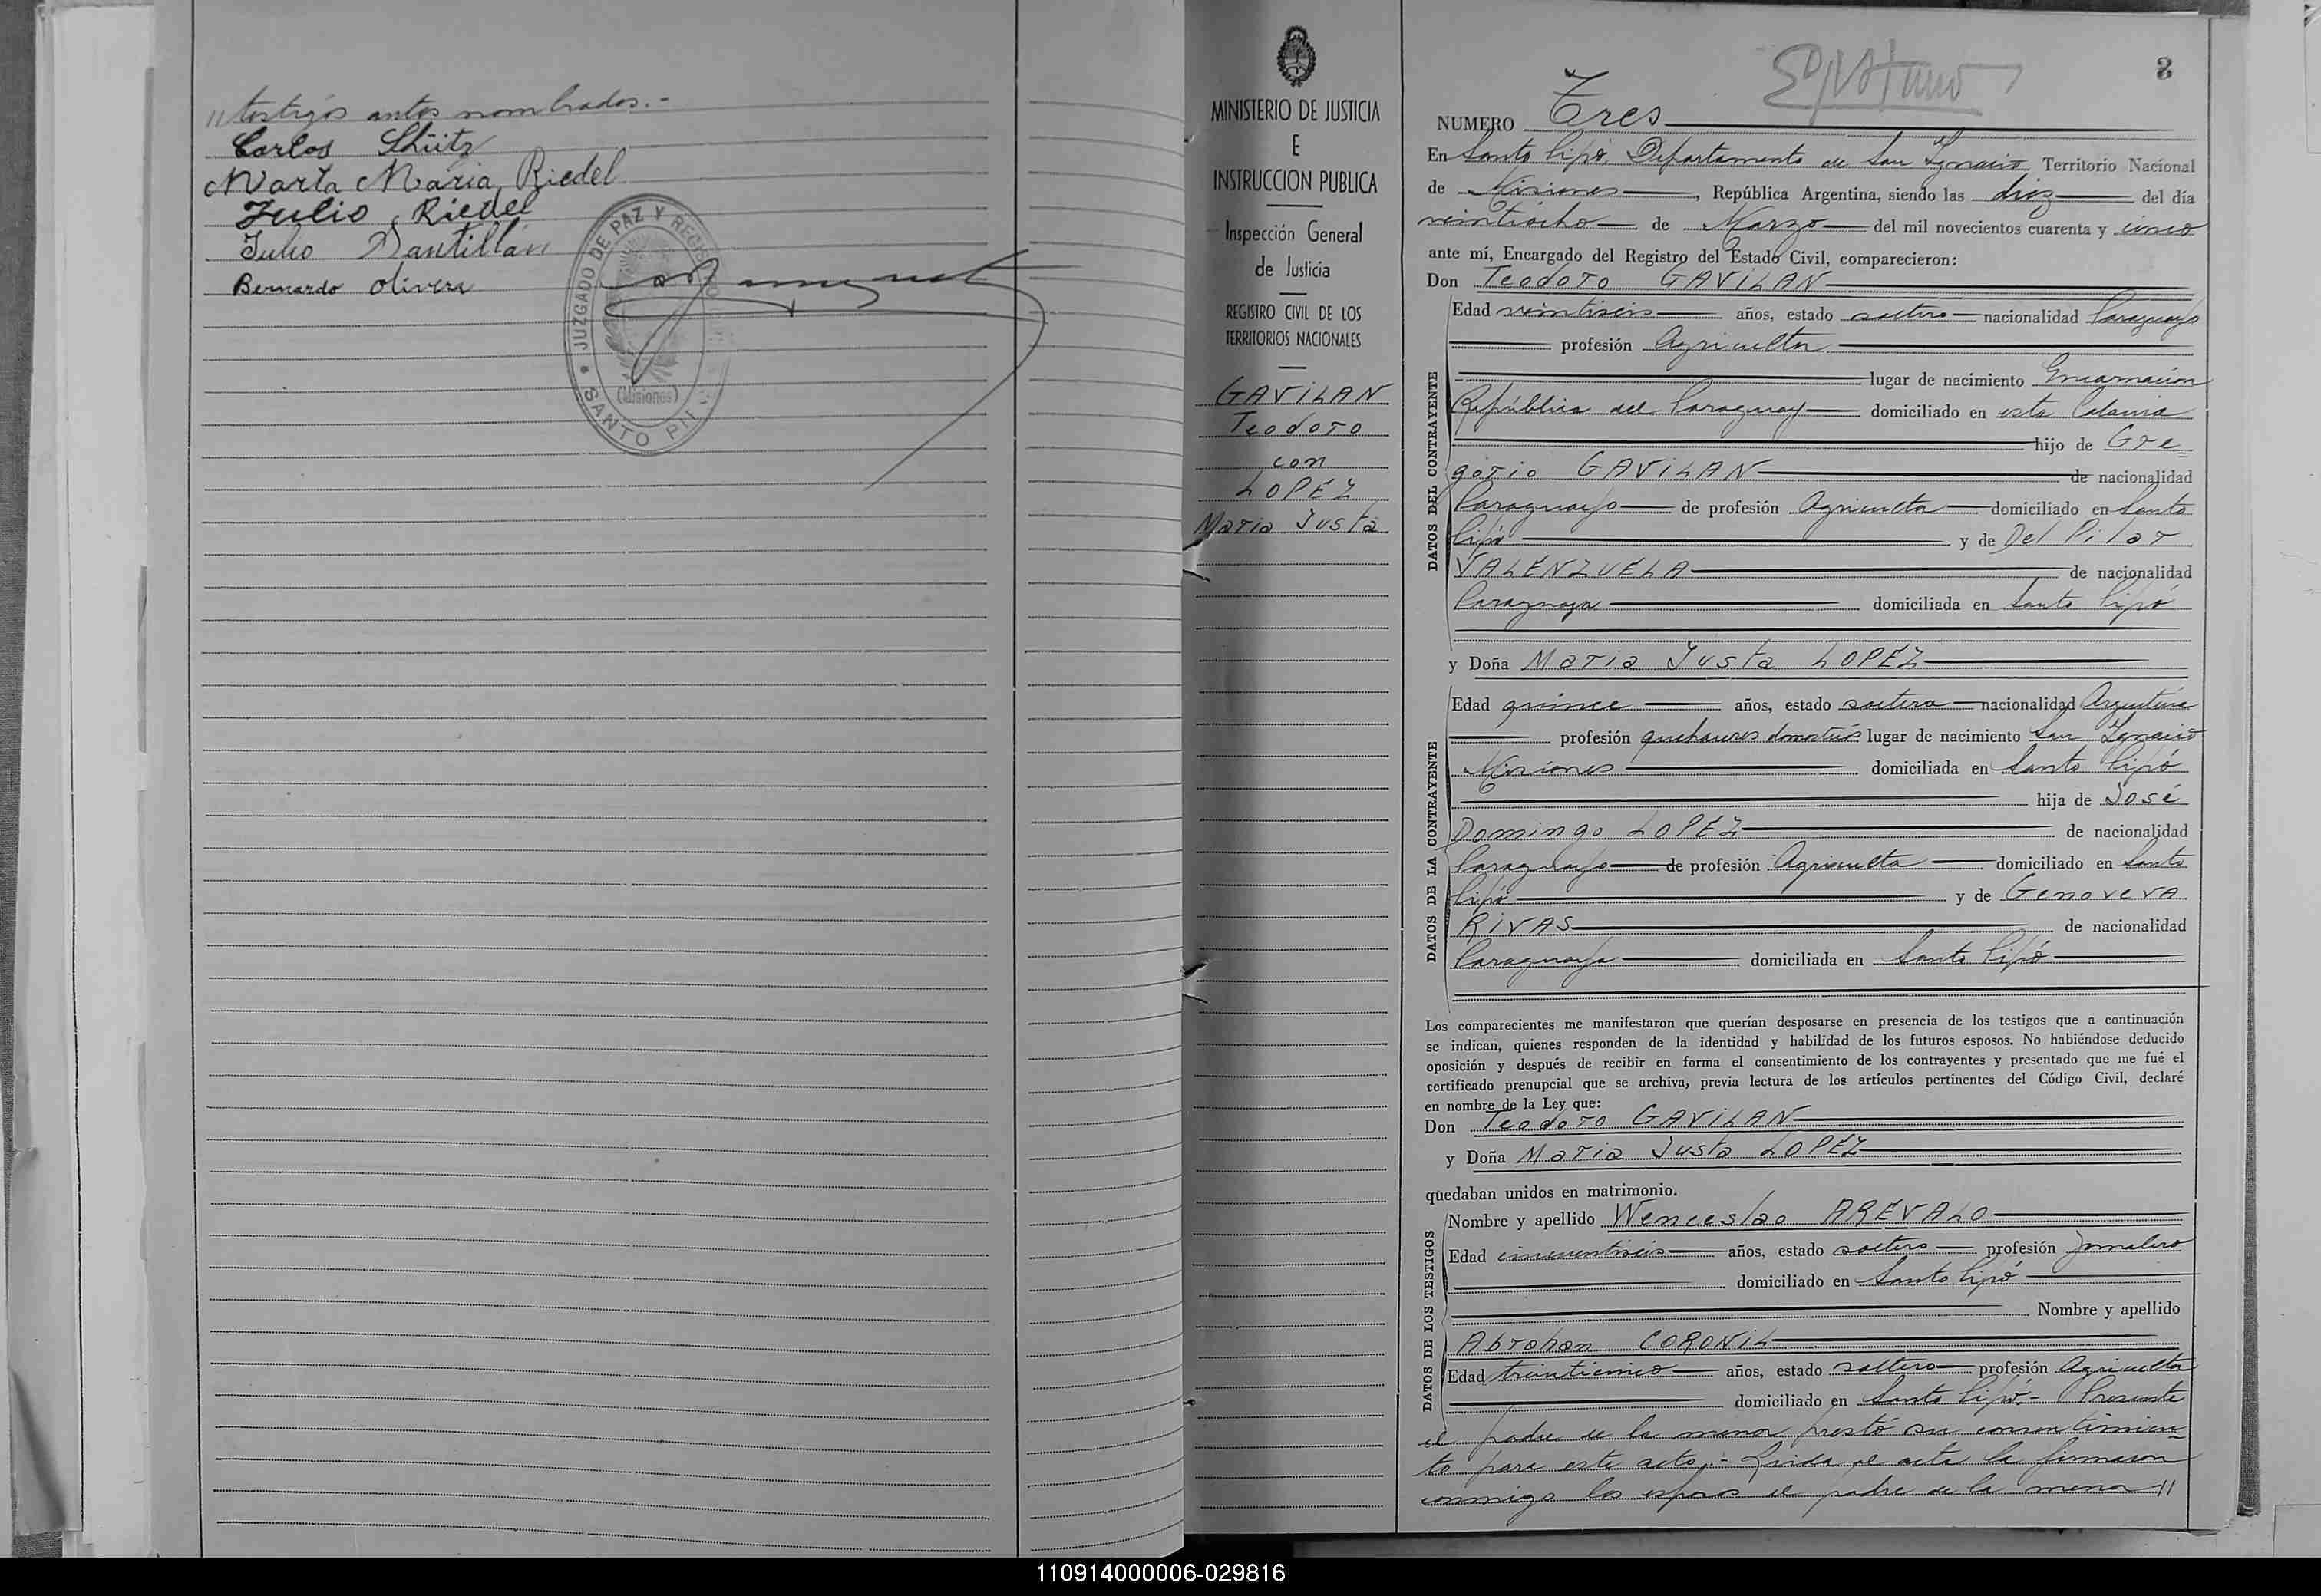 // testigos antes nombrados.-
Carlos Shütz
Marta Maria Riedel
Julio Riedel
Julio Santillán
Bernardo Olivera
JUZGADO DE PAZ Y REGISTRO
(Misiones)
SANTO PIPÓ
MINISTERIO DE JUSTICIA
E
INSTRUCCION PUBLICA
Inspección General
de Justicia
REGISTRO CIVIL DE LOS
TERRITORIOS NACIONALES
GAVILAN
Teodoro
con
LOPEZ
Maria Justa
8
NUMERO Tres
En Santo Pipó Departamento de San Ignacio Territorio Nacional
de Misiones, República Argentina, siendo las diez del día
veintiocho de Marzo del mil novecientos cuarenta y cinco
ante mí, Encargado del Registro del Estado Civil, comparecieron:
Don Teodoro GAVILAN
DATOS DEL CONTRAYENTE
Edad veintiseis años, estado soltero nacionalidad Paraguayo
profesión Agricultor
lugar de nacimiento Encarnación
República del Paraguay domiciliado en esta Colonia
hijo de Gre=
gorio GAVILAN de nacionalidad
Paraguayo de profesión Agricultor domiciliado en Santo
Pipó y de Del Pilar
VALENZUELA de nacionalidad
Paraguaya domiciliada en Santo Pipó
y Doña Maria Justa LOPEZ
DATOS DE LA CONTRAYENTE
Edad quince años, estado soltera nacionalidad Argentina
profesión quehaceres domesticos lugar de nacimiento San Ignacio
Misiones domiciliada en Santo Pipó
hija de José
Domingo LOPEZ de nacionalidad
Paraguayo de profesión Agricultor domiciliado en Santo
Pipó y de Genoveva
RIVAS de nacionalidad
Paraguaya domiciliada en Santo Pipó
Los comparecientes me manifestaron que querían desposarse en presencia de los testigos que a continuación
se indican, quienes responden de la identidad y habilidad de los futuros esposos. No habiéndose deducido
oposición y después de recibir en forma el consentimiento de los contrayentes y presentado que me fué el
certificado prenupcial que se archiva, previa lectura de los artículos pertinentes del Código Civil, declaré
en nombre de la Ley que:
Don Teodoro GAVILAN
y Doña Maria Justa LOPEZ
quedaban unidos en matrimonio.
DATOS DE LOS TESTIGOS
Nombre y apellido Wenceslao AREVALO
Edad cincuentiseis años, estado soltero profesión Jornalero
domiciliado en Santo Pipó
Nombre y apellido
Abrahan CORONIL
Edad treinticinco años, estado soltero profesión Agricultor
domiciliado en Santo Pipó.- Presente
el padre de la menor prestó su consentimien=
to para este acto.- Leida el acta la firmaron
conmigo los esposos el padre de la menor //
110914000006-029816